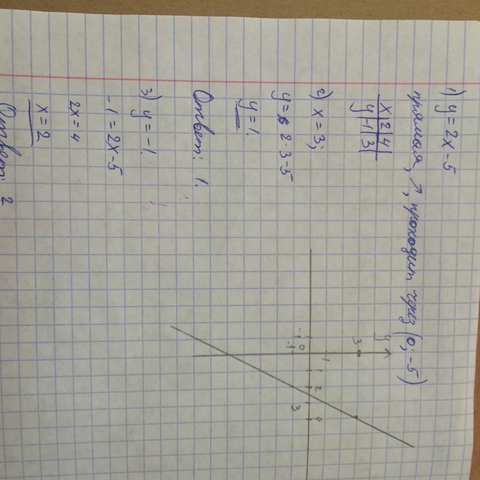 1) y = 2x - 5
прямая, ↗, проходит через (0; -5)
x | 2 | 4
y | -1 | 3
2) x = 3;
y = 2 · 3 - 5
y = 1.
Ответ: 1.
3) y = -1.
-1 = 2x - 5
2x = 4
x = 2
Ответ: 2
y
3
1
-1 0 1 2 3 4
-1